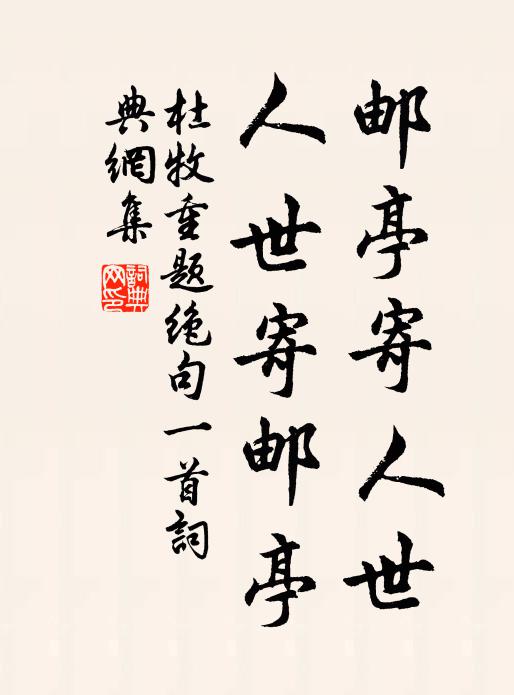 邮亭寄人世
人世寄邮亭
杜牧重题绝句一首詞
典網集
詞典
网印